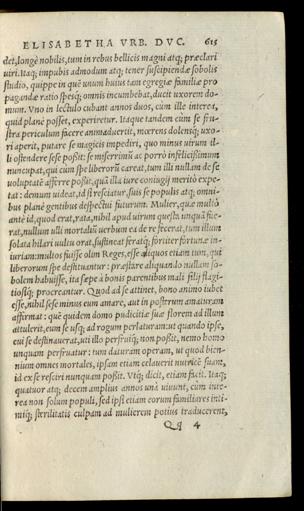 ELISABETHA VRB. DVC. 615
det, longè nobilis, tum in rebus bellicis magni atq; præclari
uiri. Itaq; impubis admodum atq; tener suscipiendæ sobolis
studio, quippe in quē unum huius tam egregiæ familiæ pro
pagandæ ratio spesq; omnis incumbebat, ducit uxorem do-
mum. Vno in lectulo cubant annos duos, cùm ille interea,
quid planè posset, experiretur. Itaque tandem cùm se fru
stra periculum facere animaduertit, mœrens dolensq; uxo-
ri aperit, putare se magicis impediri, quo minus uirum il-
li ostendere sese possit: se miserrimū ac porrò infelicissimum
nuncupat, qui cùm spe liberorū careat, tum illi nullam de se
uoluptatē afferre possit, quā illa iure coniugij meritò expe-
tat: demum uideat, id si resciatur, suis se populis atq; omni-
bus planè gentibus despectui futurum. Mulier, quæ multò
antè id, quod erat, rata, nihil apud uirum questa unquā fue-
rat, nullum ulli mortaliū uerbum ea de re fecerat, tum illum
solata hilari uultu orat, sustineat feratq; fortiter fortunæ in-
iuriam: multos fuisse olim Reges, esse aliquos etiam tum, qui
liberorum spe destituantur: præstare aliquando nullam so-
bolem habuisse, ita sæpè à bonis parentibus mali filij flagi-
tiosiq; procreantur. Quod ad se attinet, bono animo iubet
esse, nihil sese minus eum amare, aut in posterum amaturam
affirmat: quē quidem domo pudicitiæ suæ florem ad illum
attulerit, eum se usq; ad rogum perlaturam: ut quando ipse,
cui se destinauerat, uti illo perfruiq; non possit, nemo homo
unquam perfruatur: tum daturam operam, ut quod bien-
nium omnes mortales, ipsam etiam celauerit nutricē suam,
id ex se resciri nunquam possit. Vtq; dicit, etiam facit. Itaq;
quatuor atq; decem amplius annos unà uiuunt, cùm inte-
rea non solum populi, sed ipsi etiam eorum familiares inti-
miq; sterilitatis culpam ad mulierem potius traducerent,
Qq 4